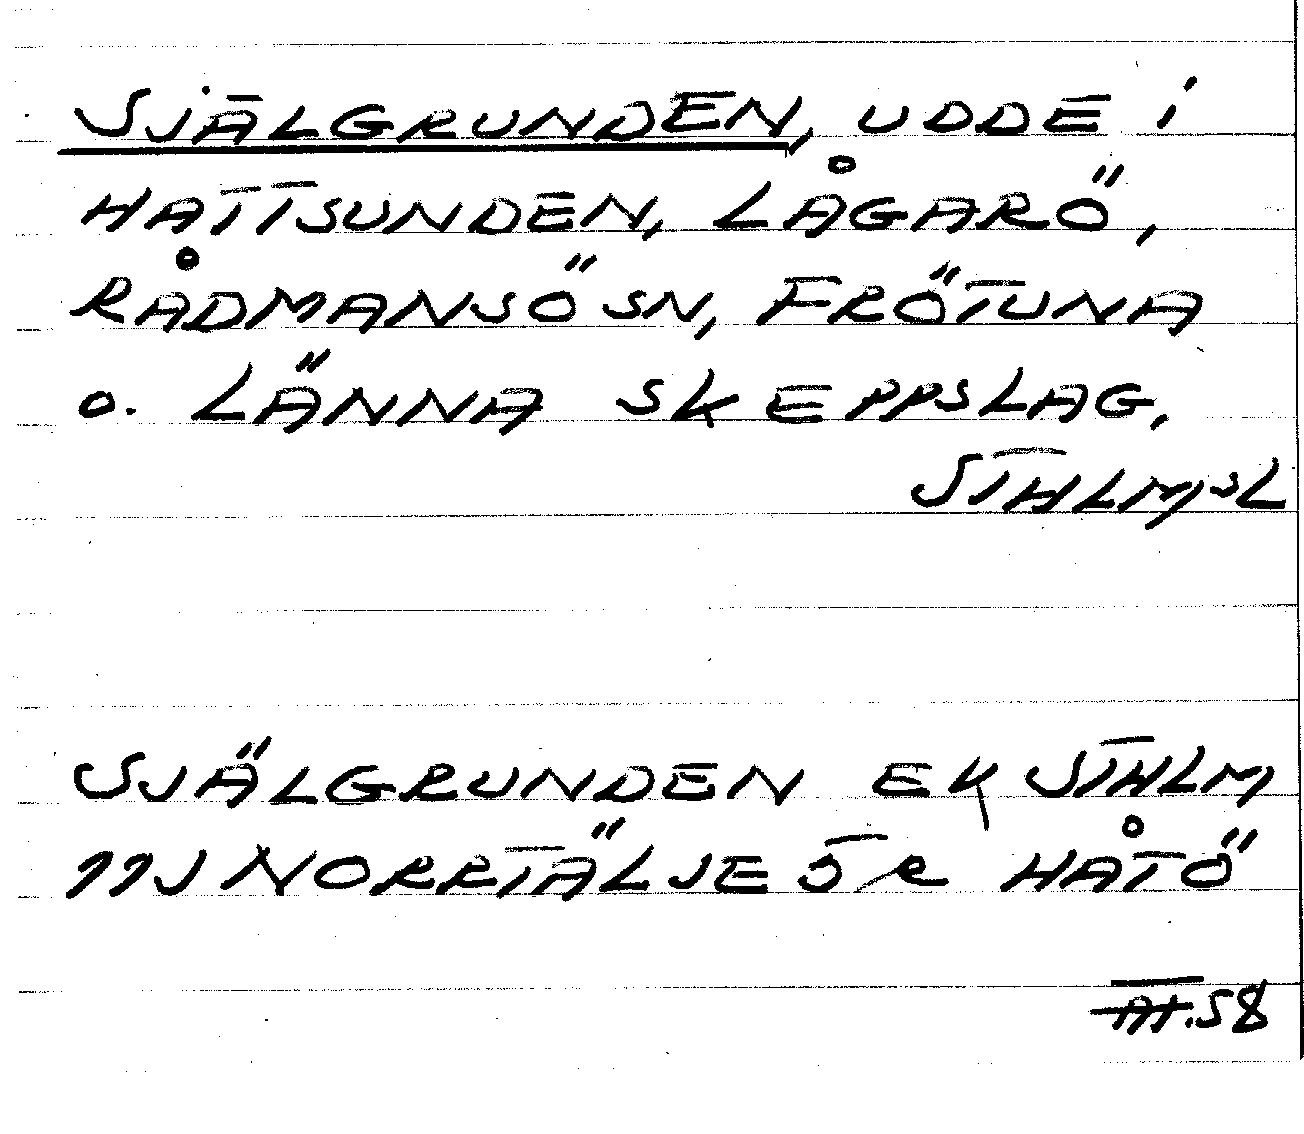 SJÄLGRUNDEN, UDDE i
HATTSUNDEN, LÅGARÖ,
RÅDMANSÖ SN, FRÖTUNA
o. LÄNNA SKEPPSLAG,
STHLMSL
SJÄLGRUNDEN EK STHLM
11J NORRTÄLJE 5R HÅTÖ